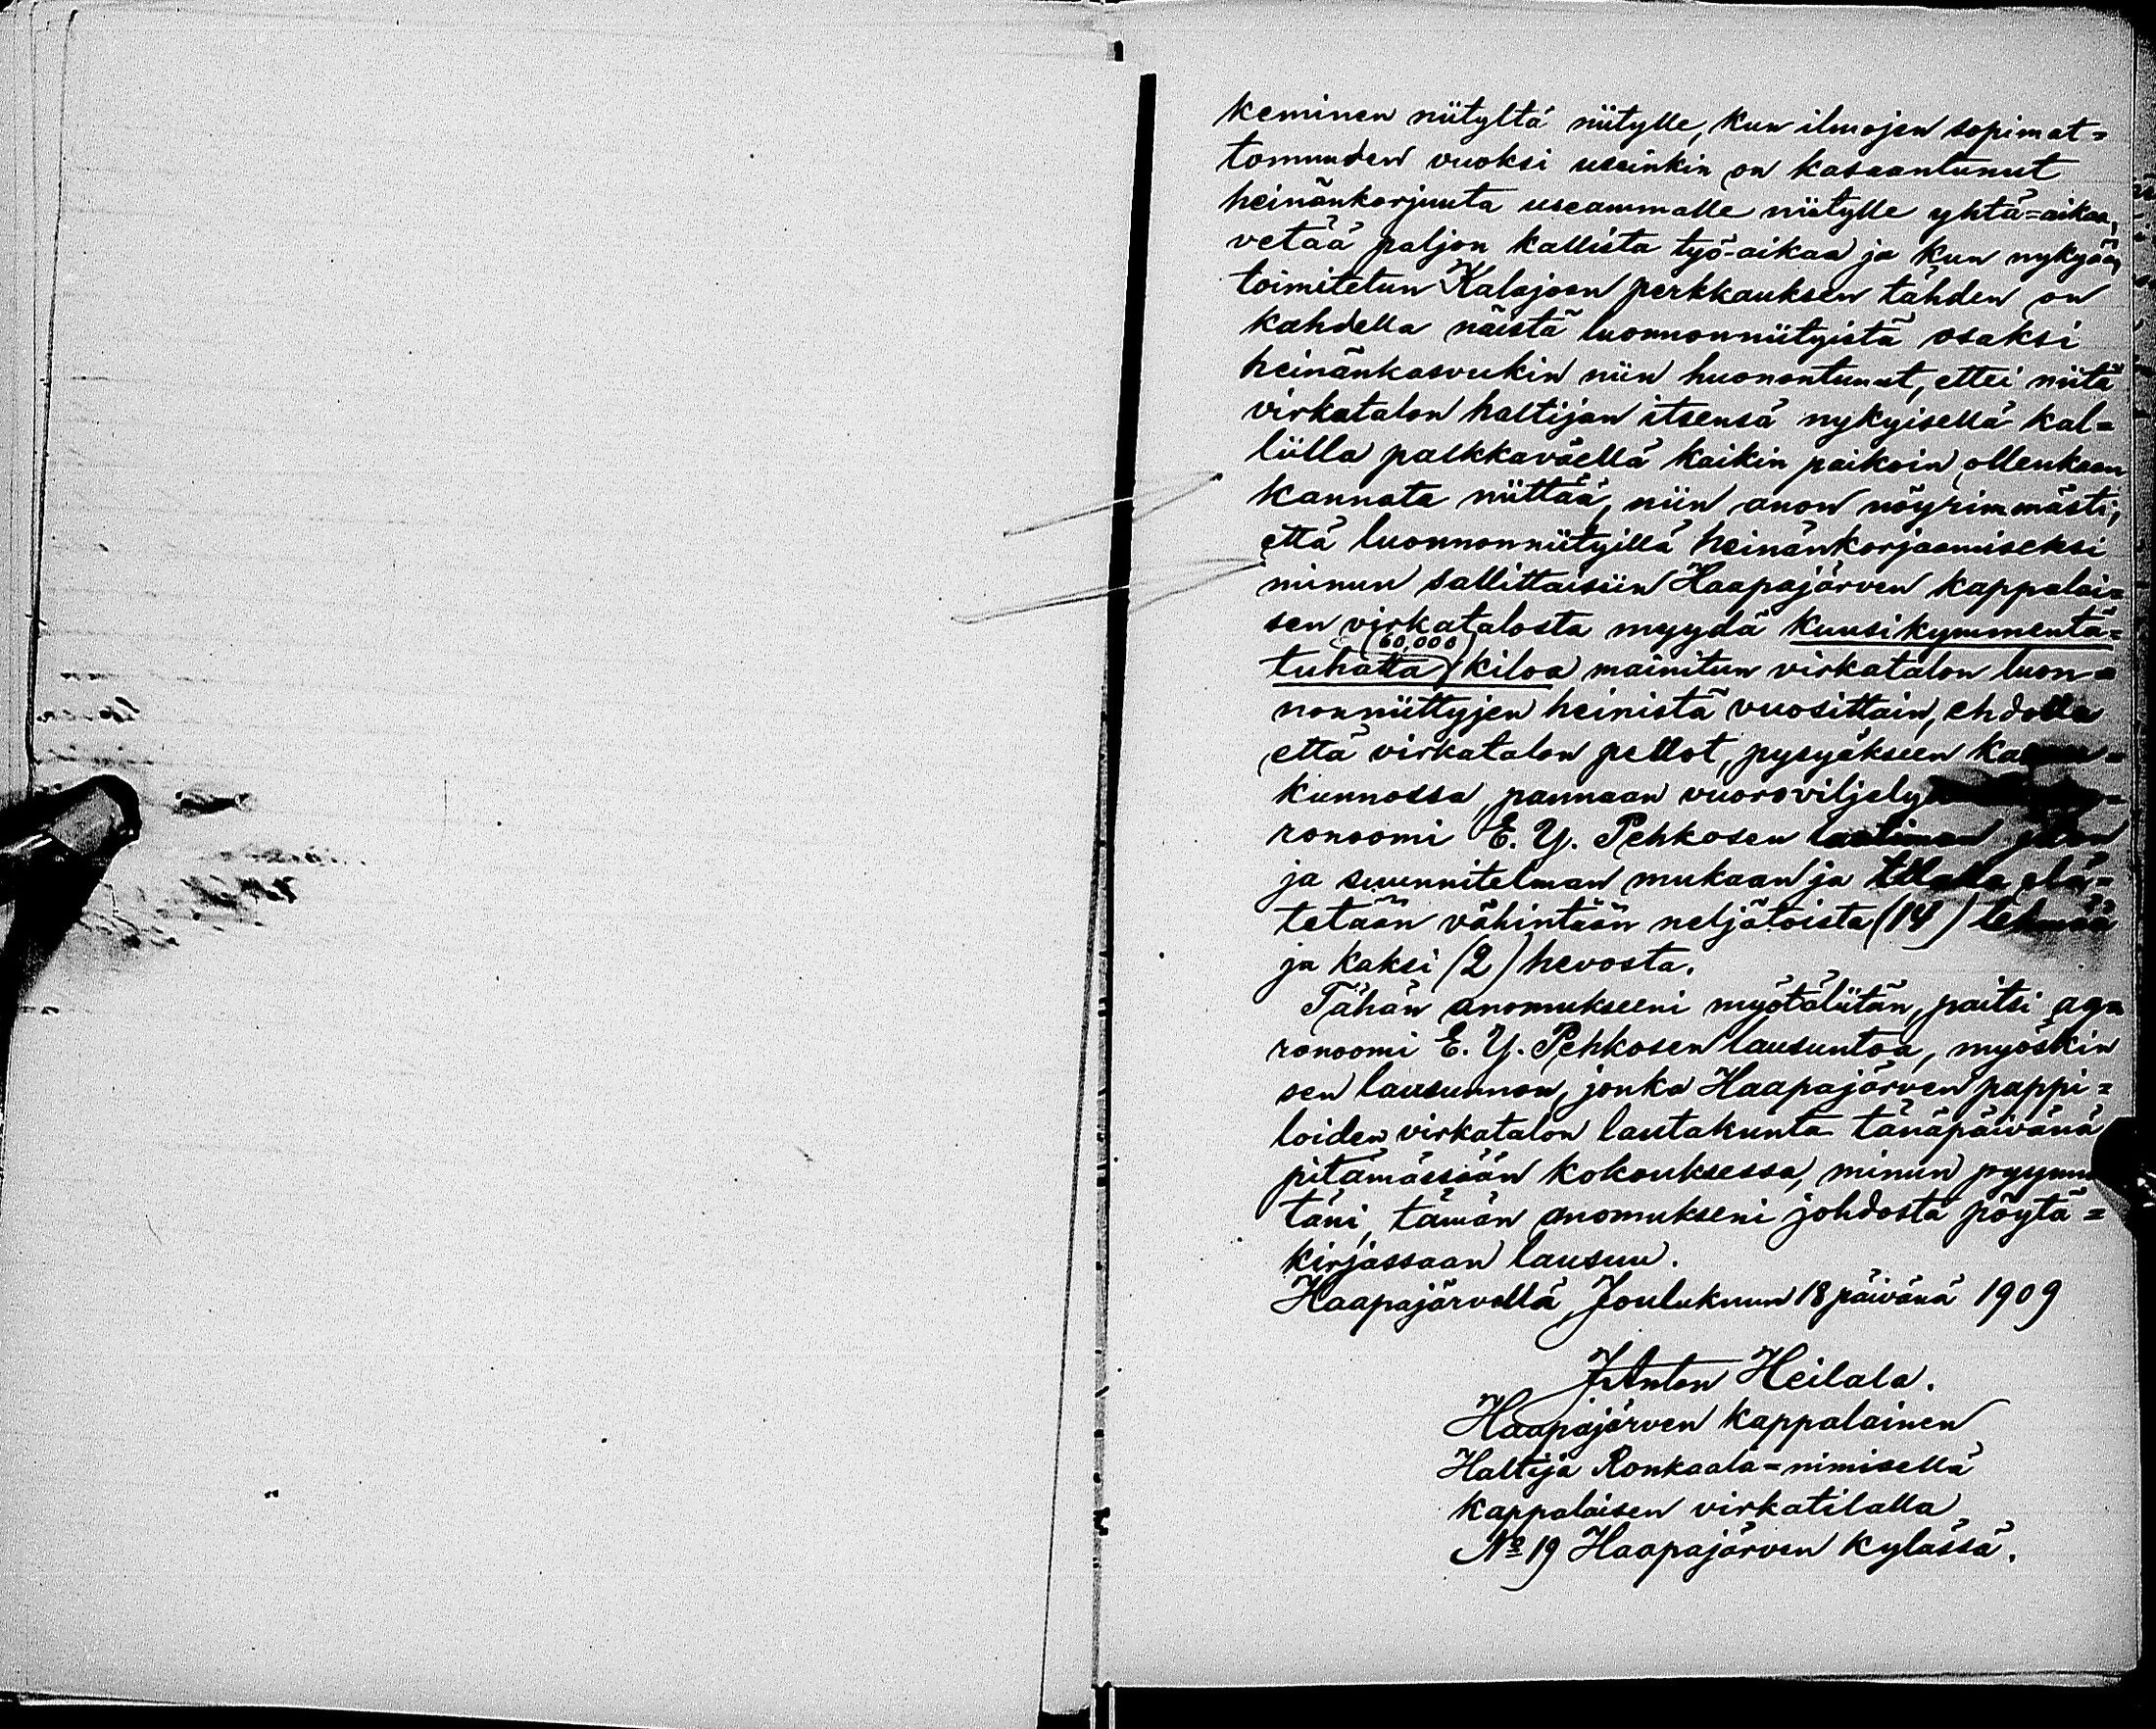 keminen niityltä niitylle, kun ilmojen sopimat=
tomuuden vuoksi useinkin on kasaantunut
heinänkorjuuta useammalle niitylle yhtä=aikaa,
vetää paljon kallista työ-aikaa ja kun nykyään
toimitetun Kalajoen perkkauksen tähden on
kahdella näistä luonnonniityistä osaksi
heinänkasvukin niin huonontunut, ettei niitä
virkatalon haltijan itsensä nykyisellä kal=
liilla palkkaväellä kaikin paikoin ollenkaan
kannata niittää, niin anon nöyrimmästi,
että luonnonniityillä heinänkorjaamiseksi
minun sallittaisiin Haapajärven kappalai=
sen virkatalosta myydä kuusikymmentä=
tuhatta (60,000) kiloa mainitun virkatalon luon=
nonniittyjen heinistä vuosittain, ehdolla
että virkatalon pellot, pysyäkseen
kunnossa, pannaan
ronoomi E. Y. Pehkosen laatiman
ja suunnitelman mukaan ja tilalla elä=
tetään vähintään neljätoista (14) lehmää
ja kaksi (2) hevosta.
Tähän anomukseeni myötäliitän, paitsi ag
ronoomi E. Y. Pehkosen lausuntoa, myöskin
sen lausunnon, jonka Haapajärven pappi=
loiden virkatalon lautakunta tänäpäivänä
pitämässään kokouksessa, minun pyynnö
täni, tämän anomukseni johdosta pöytä=
kirjassaan lausuu.
Haapajärvellä, Joulukuun 18 päivänä 1909
J Anton Heilala.
Haapajärven kappalainen
Haltija Ronkaala=nimisellä
kappalaisen virkatilalla
№ 19 Haapajärven kylässä.